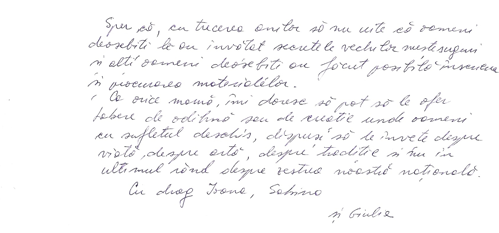 Sper că, cu trecerea anilor să nu uite că oameni
deosebiți le-au învățat secretele vechilor meșteșuguri
și alți oameni deosebiți au făcut posibilă înscrierea
și procurarea materialelor.
Ca orice mamă, îmi doresc să pot să le ofer
tabere de odihnă sau de creație unde oameni
cu sufletul deschis, dispuși să le învețe despre
viață, despre artă, despre tradiție și nu în
ultimul rând despre zestrea noastră națională.
Cu drag Ioana, Sabina
și Giulia